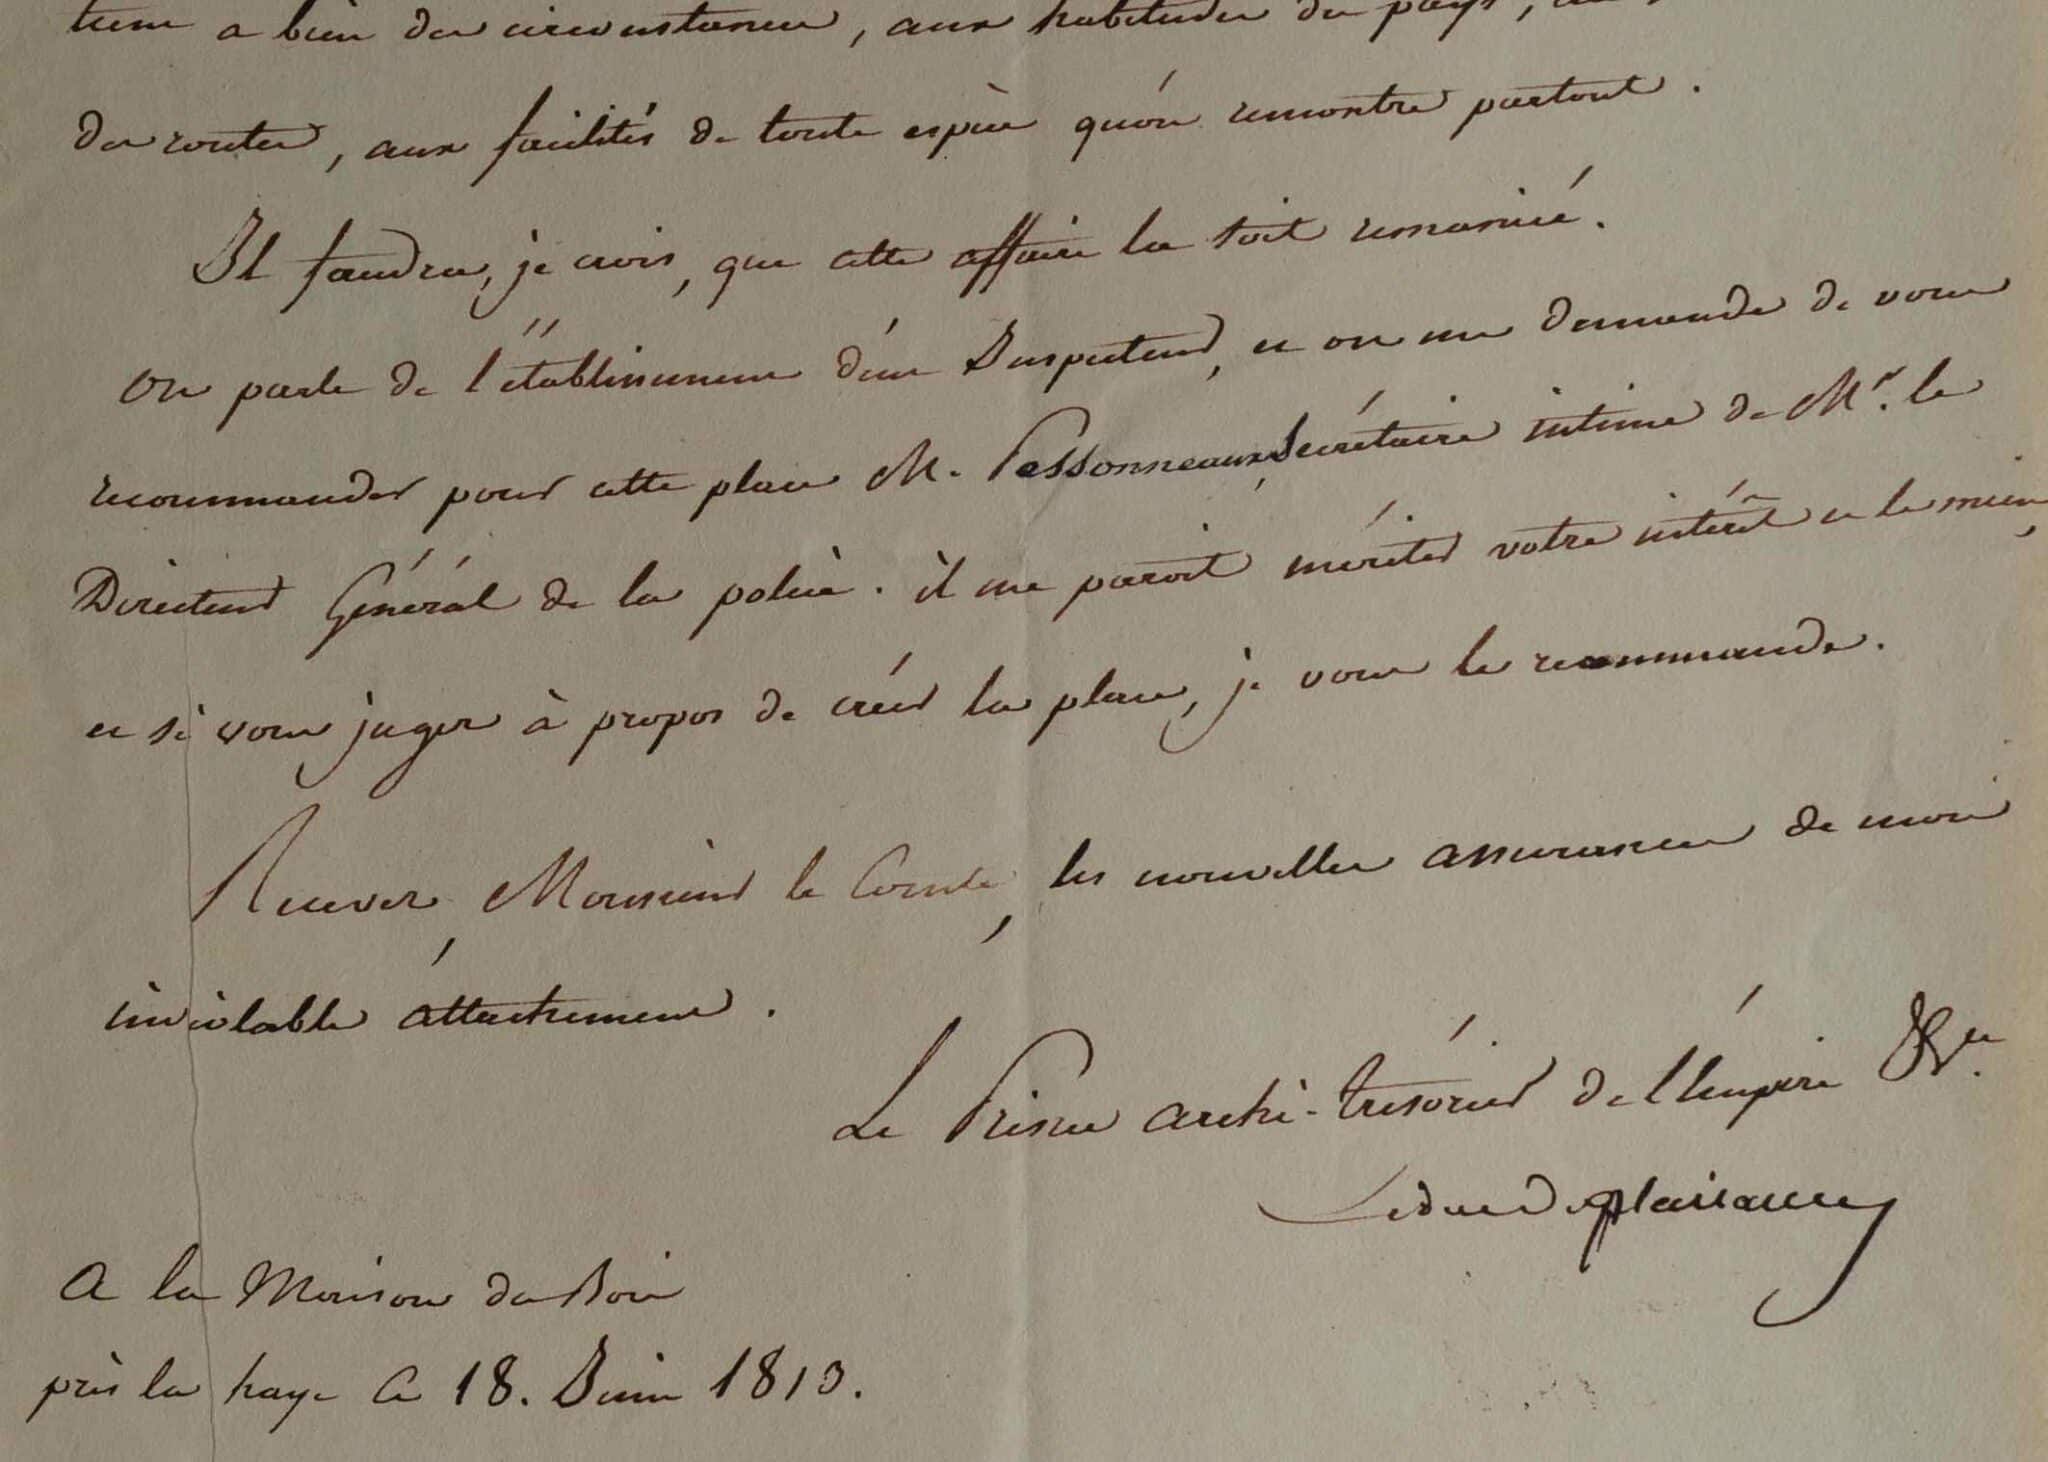 tient a bien des circonstances, aux habitudes du pays,
des routes, aux facilités de toute espèce qu'on rencontre partout.
Il faudra, je crois, que cette affaire la soit remaniée.
On parle de l'établissement d'un Inspecteur, et on me demande de vous
recommander pour cette place M. Pessonneaux, Secrétaire intime de Mr. le
Directeur Général de la police. il me paroit mériter votre intérêt et le mien,
et si vous jugez à propos de créer la place, je vous le recommande.
Recevez, Monsieur le Comte, les nouvelles assurances de mon
inviolable attachement.
Le Prince archi-trésorier de l'Empire &ca.
Le duc De plaisance
A la Maison du Bois
près la haye Ce 18. Juin 1813.